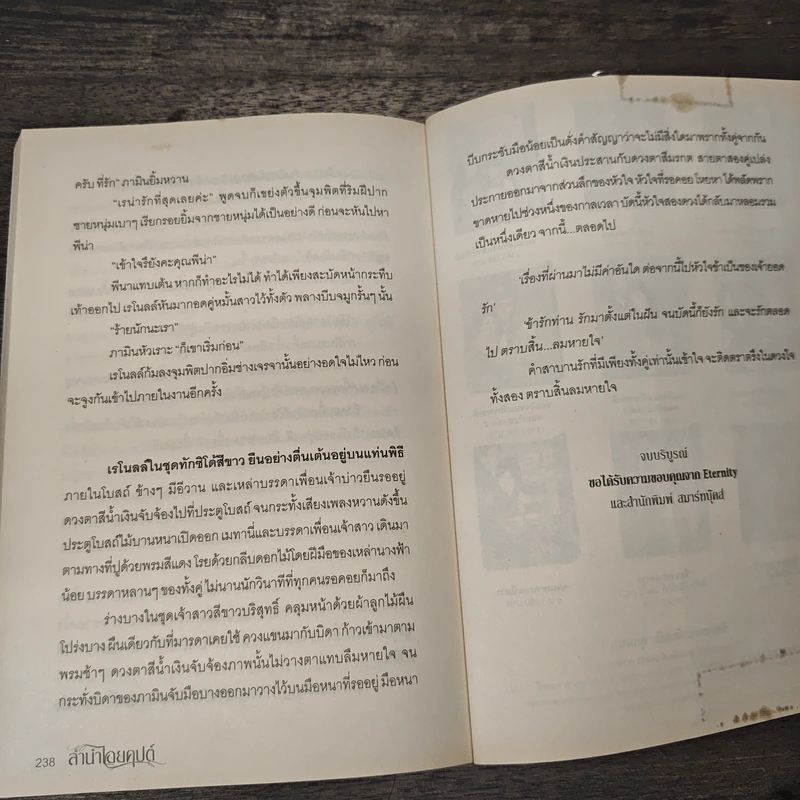 ครับ ที่รัก” ภามินยิ้มหวาน
“เรน่ารักที่สุดเลยค่ะ” พูดจบก็เขย่งตัวขึ้นจุมพิตที่ริมฝีปาก
ชายหนุ่มเบาๆ เรียกรอยยิ้มจากชายหนุ่มได้เป็นอย่างดี ก่อนจะหันไปหา
พีน่า
“เข้าใจรึยังคะคุณพีน่า”
พีนาแทบเต้น หากก็ทำอะไรไม่ได้ ทำได้เพียงสะบัดหน้ากระทืบ
เท้าออกไป เรโนลล์หันมากอดคู่หมั้นสาวไว้ทั้งตัว พลางบีบจมูกรั้นๆ นั้น
“ร้ายนักนะเรา”
ภามินหัวเราะ “ก็เขาเริ่มก่อน”
เรโนลล์ก้มลงจุมพิตปากอิ่มช่างเจรจานั้นอย่างอดใจไม่ไหว ก่อน
จะจูงกันเข้าไปภายในงานอีกครั้ง
เรโนลล์ในชุดทักซิโด้สีขาว ยืนอย่างตื่นเต้นอยู่บนแท่นพิธี
ภายในโบสถ์ ข้างๆ มีอีวาน และเหล่าบรรดาเพื่อนเจ้าบ่าวยืนรออยู่
ดวงตาสีน้ำเงินจับจ้องไปที่ประตูโบสถ์ จนกระทั่งเสียงเพลงหวานดังขึ้น
ประตูโบสถ์ไม้บานหนาเปิดออก เมทานี่และบรรดาเพื่อนเจ้าสาว เดินมา
ตามทางที่ปูด้วยพรมสีแดง โรยด้วยกลีบดอกไม้โดยฝีมือของเหล่านางฟ้า
น้อย บรรดาหลานๆ ของทั้งคู่ ไม่นานนักวินาทีที่ทุกคนรอคอยก็มาถึง
ร่างบางในชุดเจ้าสาวสีขาวบริสุทธิ์ คลุมหน้าด้วยผ้าลูกไม้ผืน
โปร่งบาง ผืนเดียวกับที่มารดาเคยใช้ ควงแขนมากับบิดา ก้าวเข้ามาตาม
พรมช้าๆ ดวงตาสีน้ำเงินจับจ้องภาพนั้นไม่วางตาแทบลืมหายใจ จน
กระทั่งบิดาของภามินจับมือบางออกมาวางไว้บนมือหนาที่รออยู่ มือหนา
238 ลำนำไอยคุปต์
บีบกระชับมือน้อยเป็นดั่งคำสัญญาว่าจะไม่มีสิ่งใดมาพรากทั้งคู่จากกัน
ดวงตาสีน้ำเงินประสานกับดวงตาสีมรกต สายตาสองคู่เปล่ง
ประกายออกมาจากส่วนลึกของหัวใจ หัวใจที่รอคอย โหยหา ได้พลัดพราก
ขาดหายไปช่วงหนึ่งของกาลเวลา บัดนี้หัวใจสองดวงได้กลับมาหลอมรวม
เป็นหนึ่งเดียว จากนี้...ตลอดไป
‘เรื่องที่ผ่านมาไม่มีค่าอันใด ต่อจากนี้ไปหัวใจข้าเป็นของเจ้ายอด
รัก’
‘ข้ารักท่าน รักมาตั้งแต่ในฝัน จนบัดนี้ก็ยังรัก และจะรักตลอด
ไป ตราบสิ้น...ลมหายใจ’
คำสาบานรักที่มีเพียงทั้งคู่เท่านั้นเข้าใจ จะติดตราตรึงในดวงใจ
ทั้งสอง ตราบสิ้นลมหายใจ
จบบริบูรณ์
ขอได้รับความขอบคุณจาก Eternity
และสำนักพิมพ์ สมาร์ทบุ๊คส์